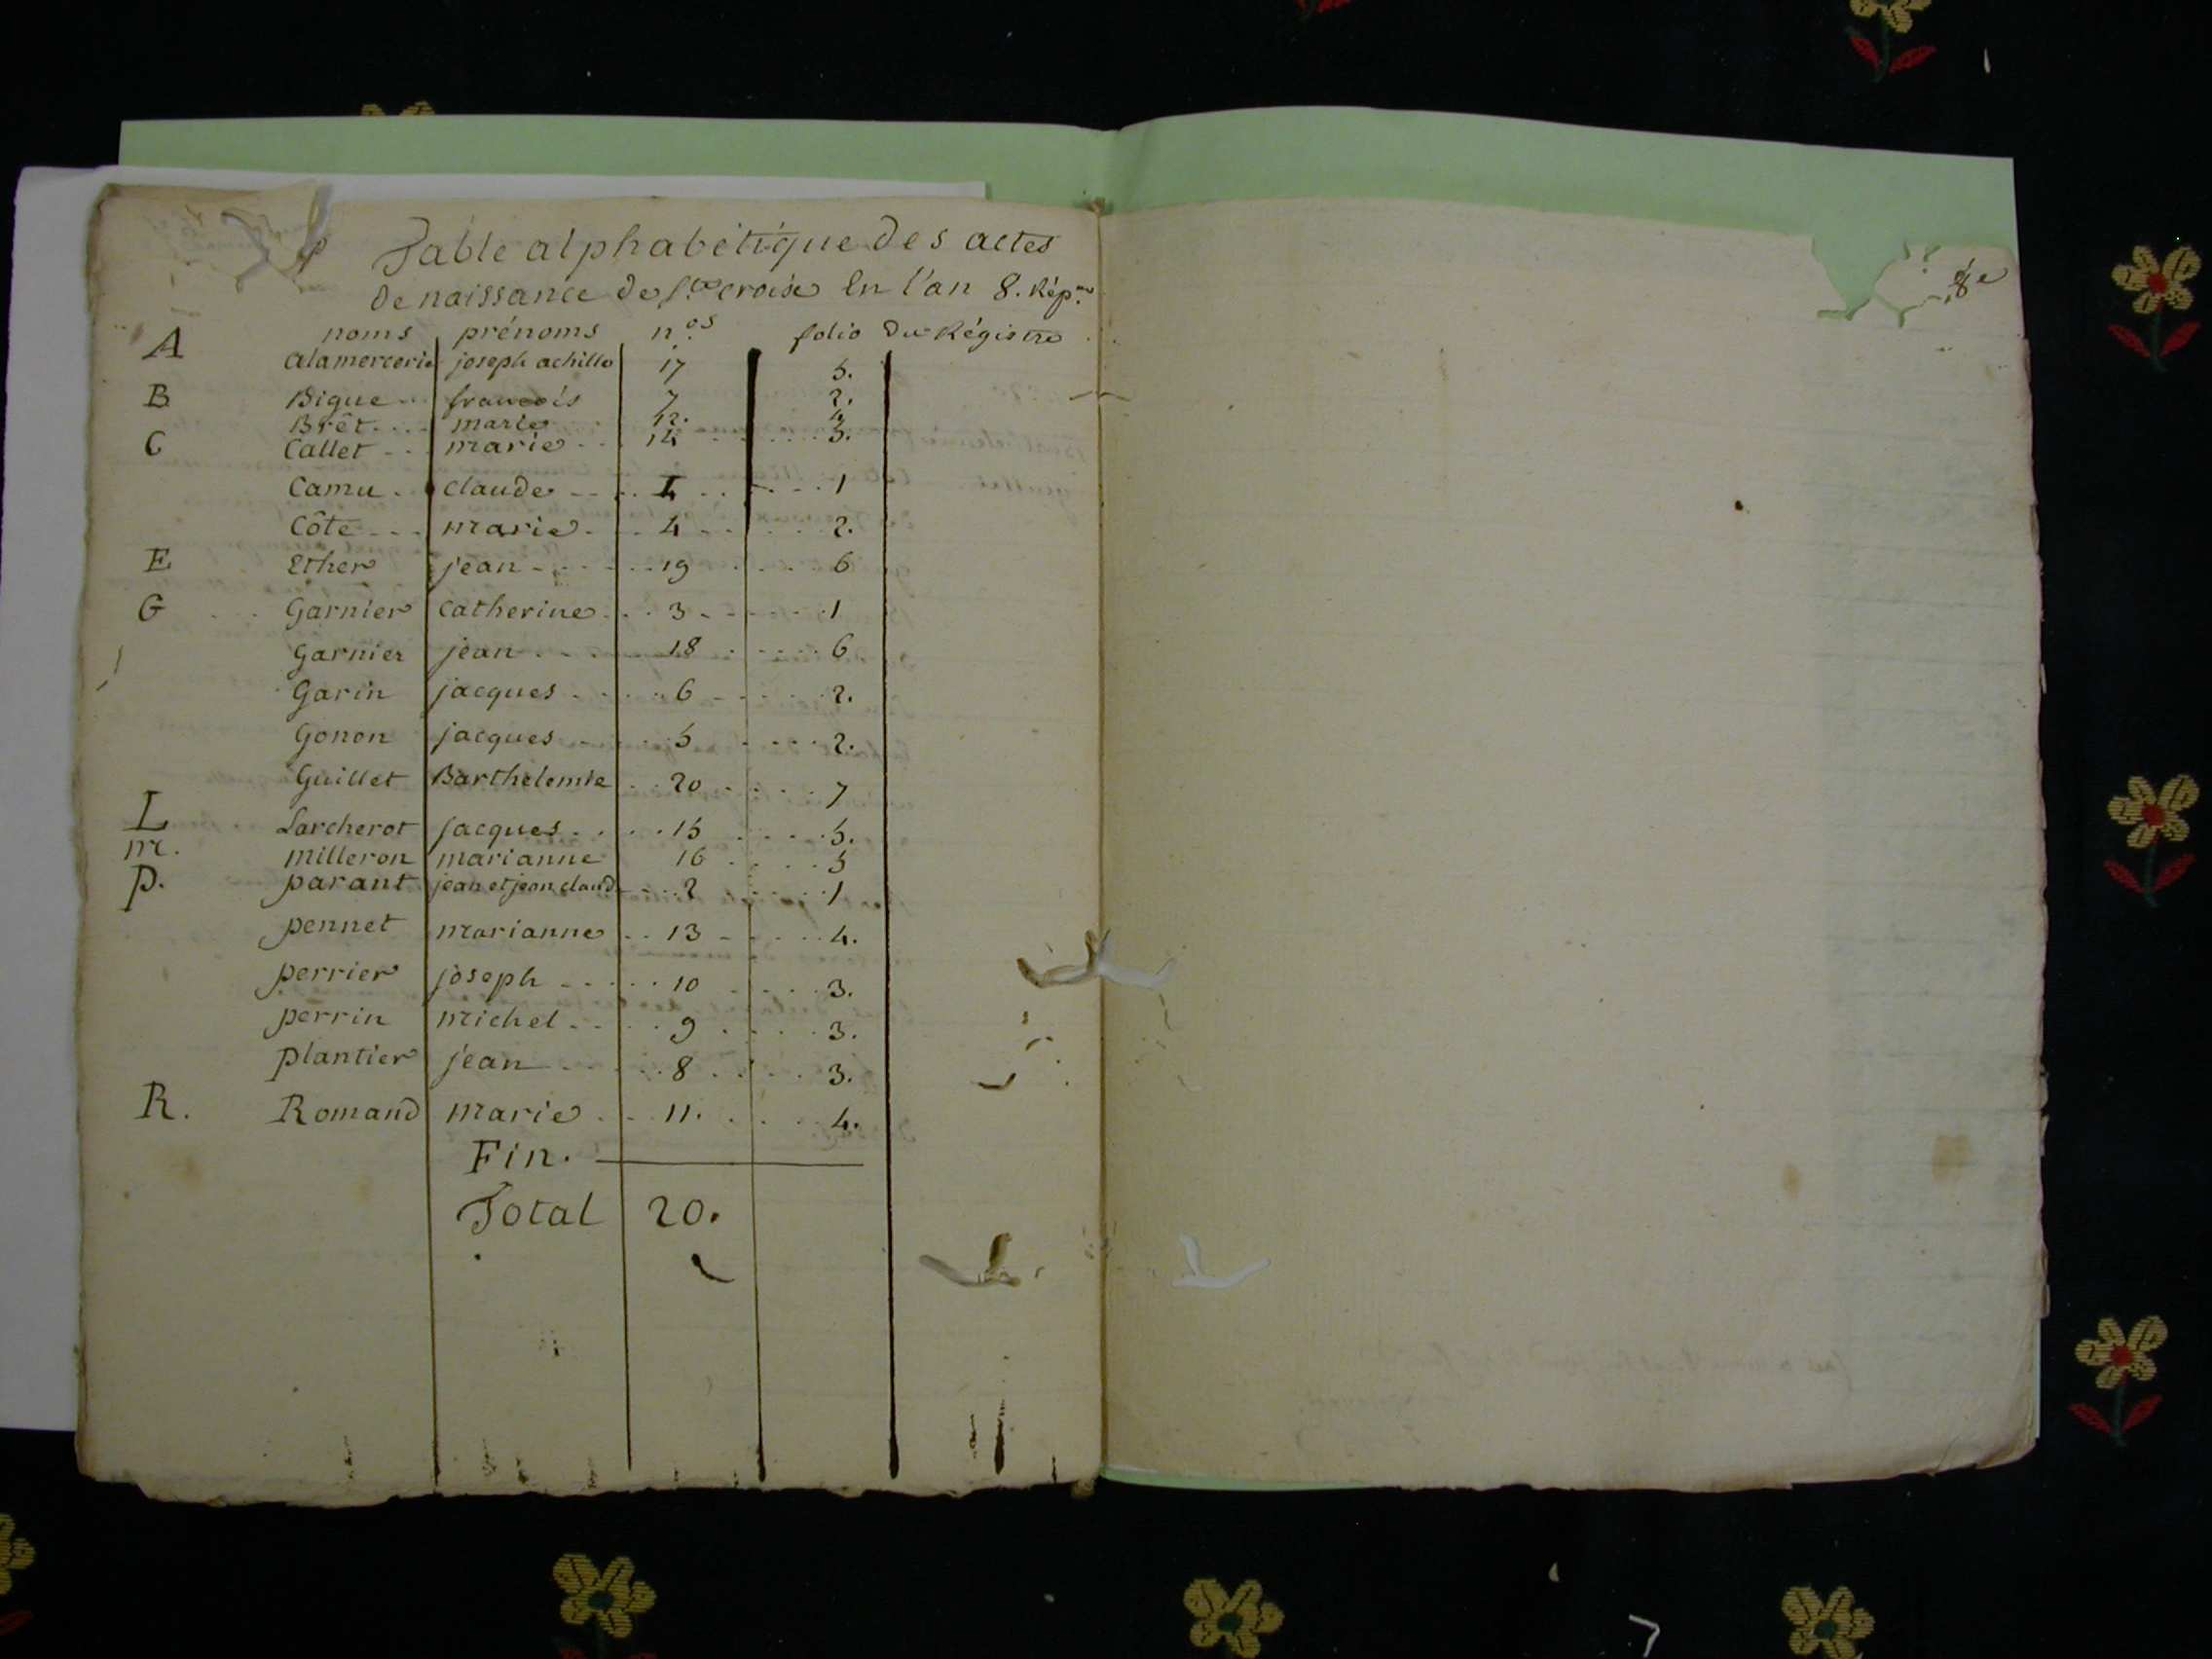 Table alphabétique des actes
de naissance de Ste croix En l'an 8. Rép.
noms prénoms n.os folio du Régistre
A alamercerie joseph achille 17 5.
B Bigue francois 7 2.
Brêt.... marie 12. 4
C Callet marie 14 5.
Camu claude 1 1
Côte marie 4 2.
E Ether jean 19 6
G Garnier catherine 3 1
Garnier jean 18 6
Garin jacques 6 2.
Gonon jacques 5 2.
Guillet Barthelemie 20 7
L Larcherot jacques 15 5.
m. milleron marianne 16 5
p. parant jean et jean claude 2 1
pennet marianne 13 4.
perrier joseph 10 3.
perrin michel 9 3.
plantier jean 8 3.
R. Romand marie 11. 4.
Fin.
Total 20.
8e